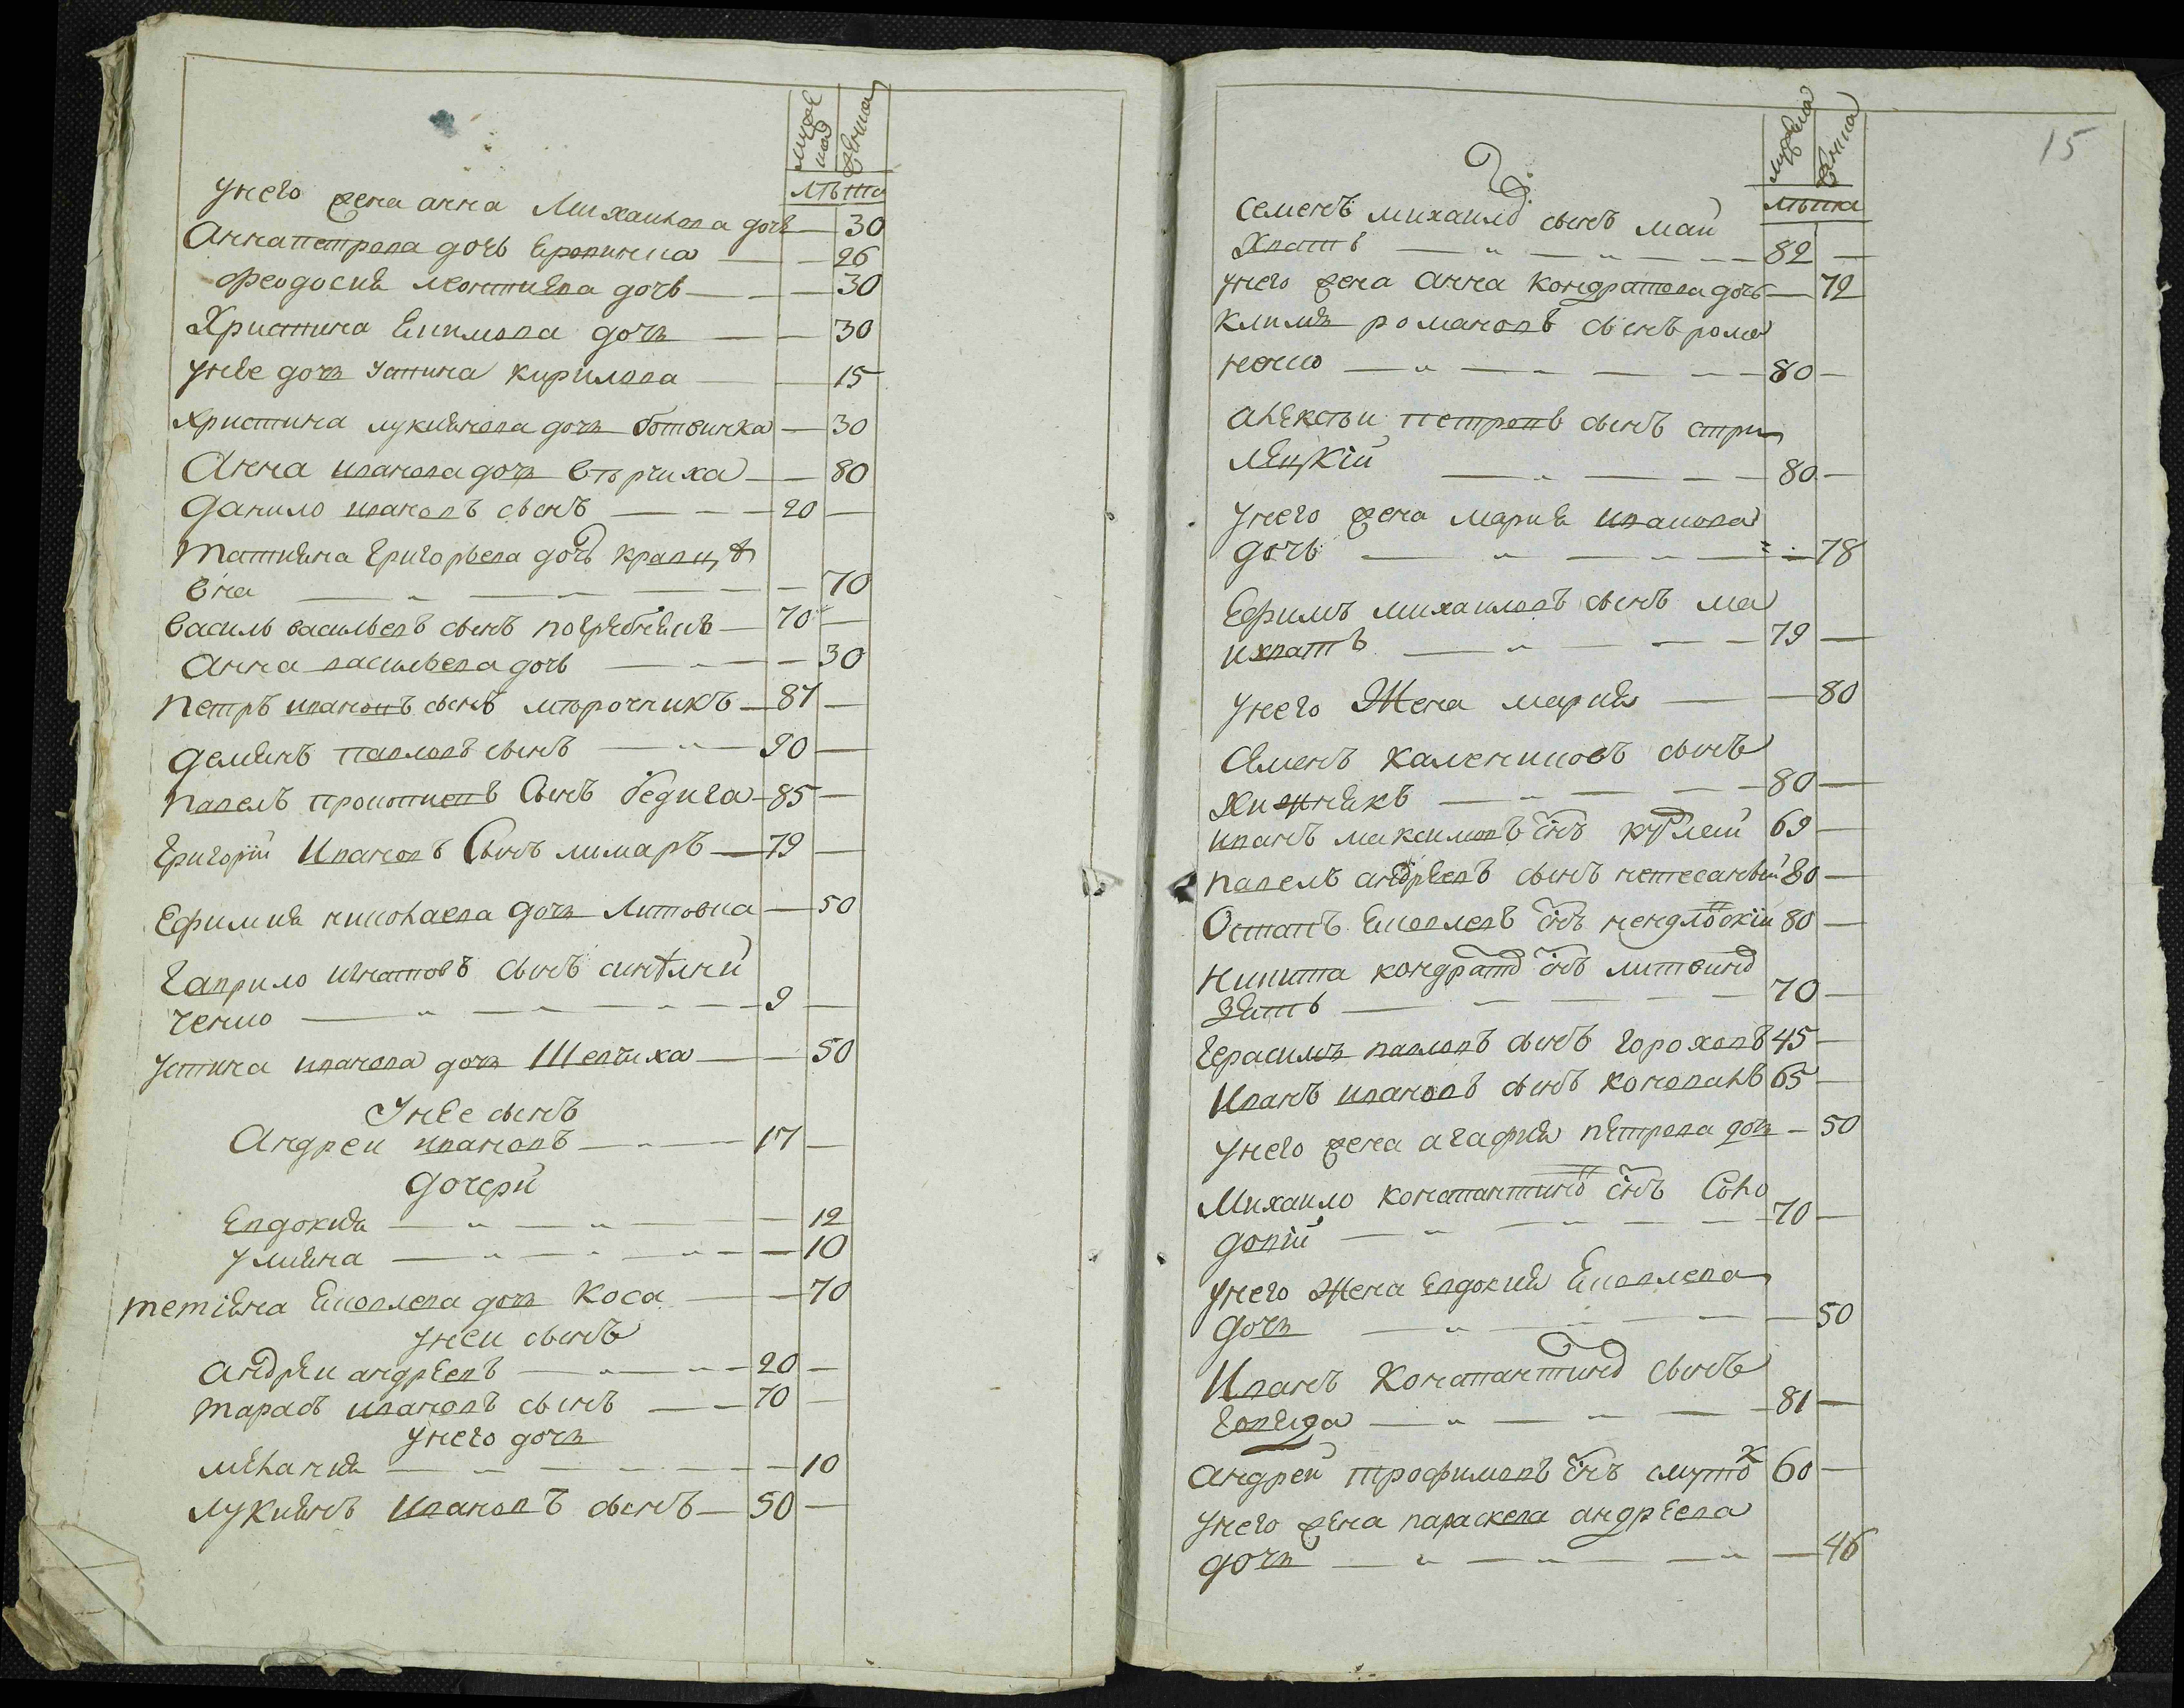 мужеска
женска
лѣта
Унего жена анна Михаилова дочь — 30
Анна петрова дочь Еропинка — 26
Феодосия леонтиева дочь — 30
Христина Екимова дочь — 30
Унее дочь Устина кирилова — 15
Христина лукиянова дочь ботвинка — 30
Анна иванова дочь вторчиха — 80
Данило ивановъ сынъ — 20 —
татияна григорьева дочь кравцѣ
вна — 70
василь васильевъ сынъ погребнякъ — 70 —
Анна васильева дочь — 30
петръ ивановъ сынъ мърочникъ — 87 —
Демянъ павловъ сынъ — 90 —
павелъ прокопиевъ Сынъ бедига — 85 —
Григорій Ивановъ Сынъ лимаръ — 79 —
Ефимия николаева дочь Литовка — 50
Гаврило игнатовъ сынъ синѣлни
ченко — 9 —
устина иванова дочь Шевчиха — 50
Унее сынъ
Андреи ивановъ — 17 —
Дочери
Евдокия — 12
Улияна — 10
тетіяна Яковлева дочь Коса — 70
унеи сынъ
андреи андреевъ — 20 —
тарасъ ивановъ сынъ — 70 —
унего дочь
мелания — 10
лукиянъ Ивановъ сынъ — 50 —
15
мужеска
женска
лѣта
семенъ михаило сынъ маи
Хватъ — 82 —
унего жена анна кондратова дочь — 72
климъ романовъ сынъ рома
ненко — 80 —
алексѣи петровъ сынъ стри
лецкій — 80 —
унего жена мария иванова
дочь — 78
Ефимъ михаиловъ сынъ ма
ихватъ — 79 —
унего Жена мария — 80
Семенъ калениковъ сынъ
Хижнякъ — 80 —
иванъ максимовъ снъ кублеи 69 —
павелъ андреевъ сынъ нетесаный 80 —
Остапъ Яковлевъ снъ 80 —
Никита кондрато снъ литвино
Зять — 70 —
Герасимъ павловъ сынъ гороховъ 45 —
Иванъ ивановъ сынъ коновалъ 65 —
унего жена агафия петрова дочь — 50
Михаило констанътино снъ Соло
довій — 70 —
унего Жена Евдокия Яковлева
Дочь — 50
Иванъ Констанътино сынъ
Говяда — 81 —
андреи трофимовъ снъ смуто 60 —
унего жена параскева андреева
дочь — 46